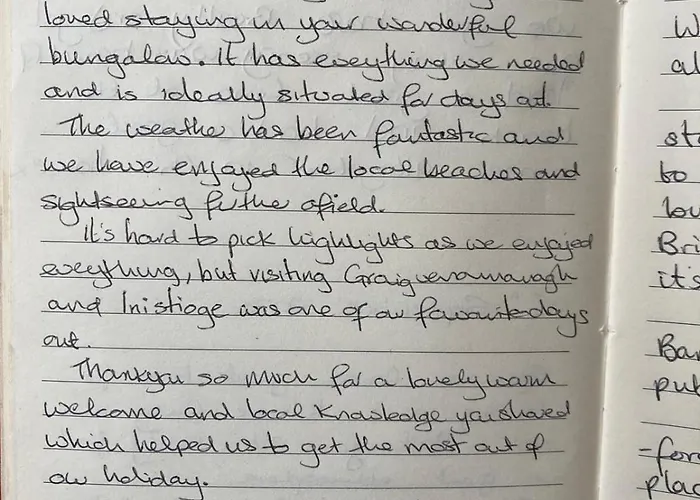 loved staying in your wonderful
bungalow. It has everything we needed
and is ideally situated for days out.
The weather has been fantastic and
we have enjoyed the local beaches and
sightseeing further afield.
It's hard to pick highlights as we enjoyed
everything, but visiting Graiguenamanagh
and Inistioge was one of our favourite days
out.
Thankyou so much for a lovely warm
welcome and local knowledge you shared
which helped us to get the most out of
our holiday.
W
al
st
to
lou
Bri
it's
Ba
put
-for
plac